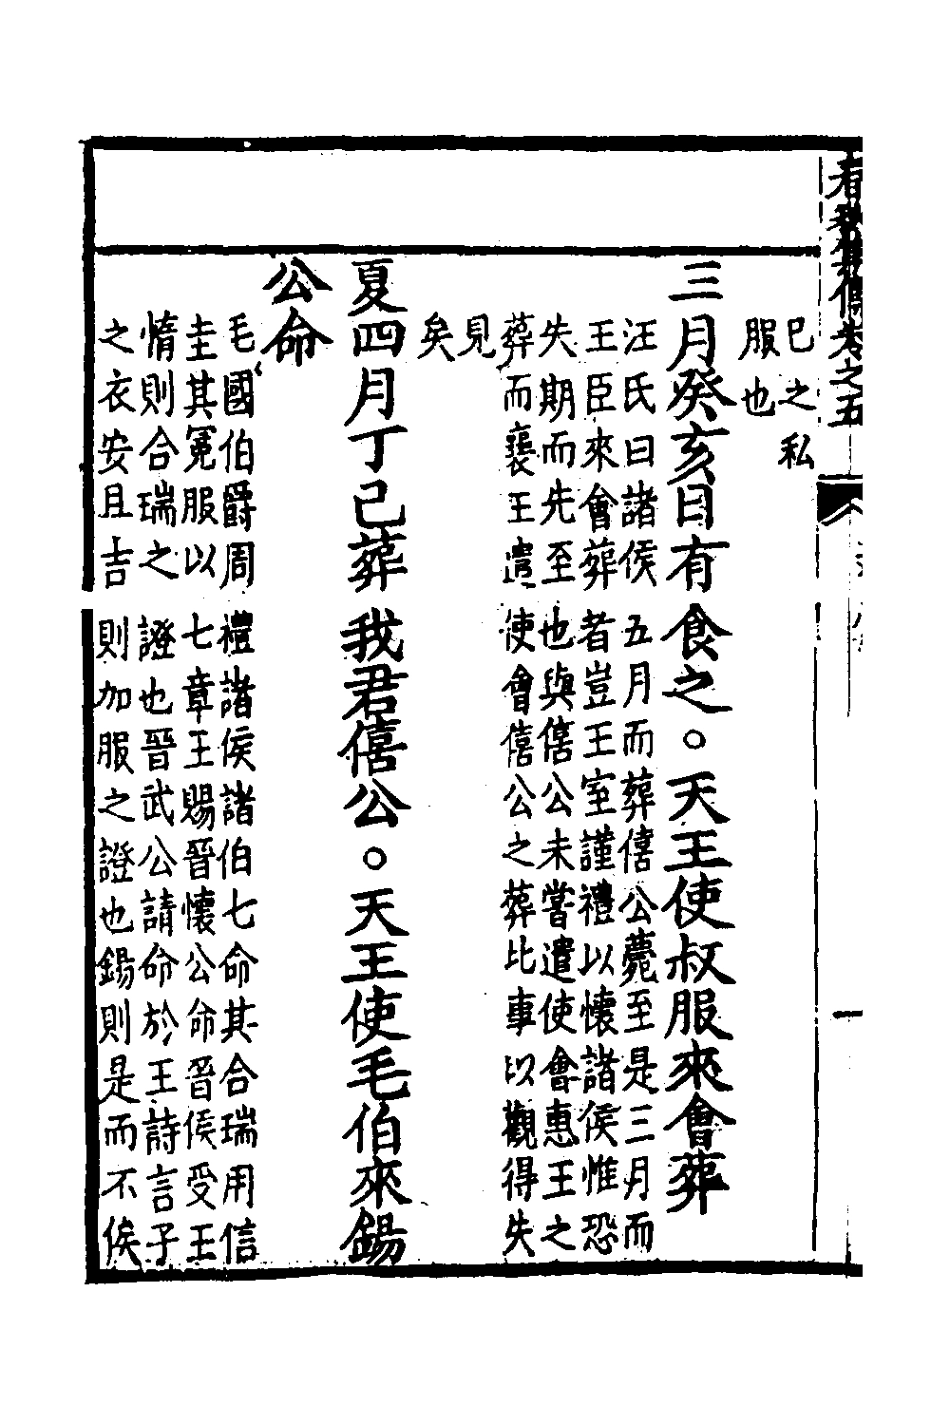 春秋集傳卷之五
一
已之私
服也
三月癸亥日有食之○天王使叔服來會葬
汪氏曰諸侯五月而葬僖公薨至是三月而
王臣來會葬者豈王室謹禮以懷諸侯惟恐
失期而先至也與僖公未嘗遣使會惠王之
葬而襄王遣使會僖公之葬比事以觀得失
見
矣
夏四月丁己葬我君僖公○天王使毛伯來錫
公命
毛國伯爵周禮諸侯諸伯七命其合瑞用信
圭其冕服以七章王賜晉懷公命晉侯受王
惰則合瑞之證也晉武公請命於王詩言子
之衣安且吉則加服之證也錫則是而不俟